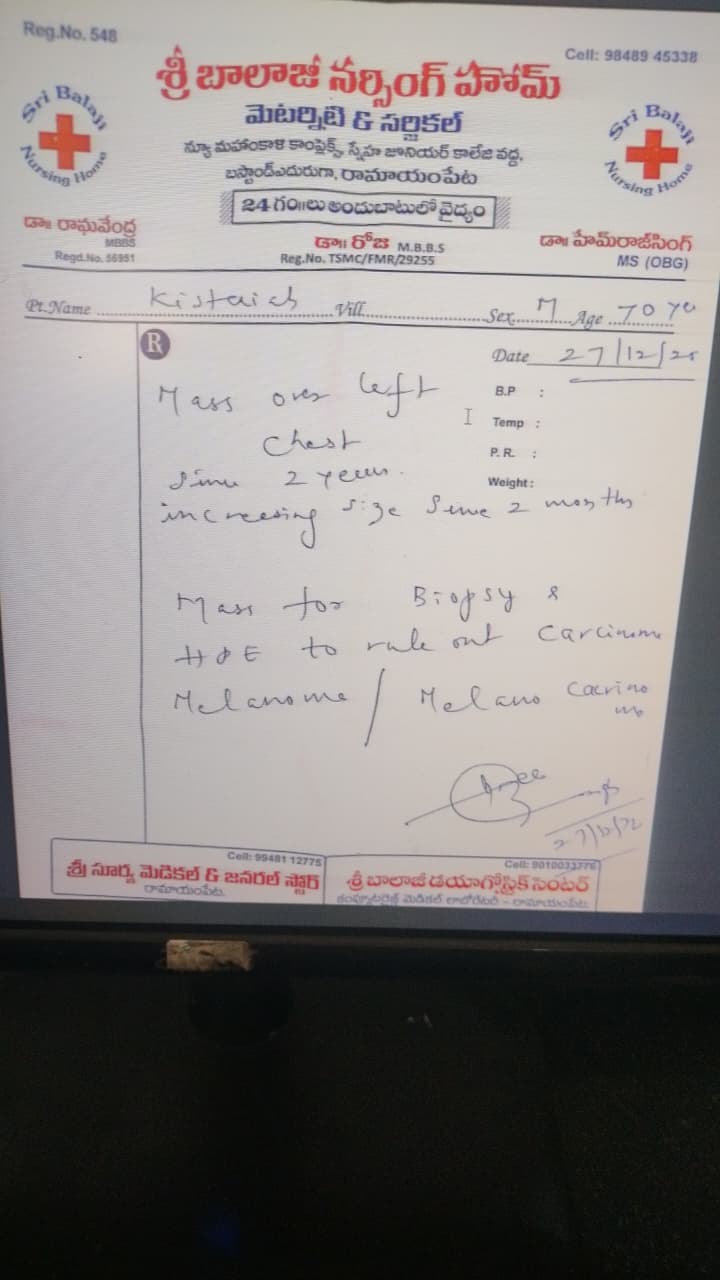 Reg.No. 548
Cell: 98489 45338
శ్రీ బాలాజీ నర్సింగ్ హోమ్
మెటర్నిటి & సర్జికల్
Sri Balaji Nursing Home
Sri Balaji Nursing Home
న్యూ మహంకాళి కాంప్లెక్స్, స్నేహ జూనియర్ కాలేజి వద్ద,
బస్టాండ్ఎదురుగా, రామాయంపేట
24 గం॥లు అందుబాటులో వైద్యం
డా॥ రాఘవేంద్ర
MBBS
Regd.No. 56951
డా॥ రోజ M.B.B.S
Reg.No. TSMC/FMR/29255
డా॥ హేమ్‌రాజ్‌సింగ్
MS (OBG)
Pt.Name Kistaiah Vill Sex M Age 70
R
Date 27/12/25
B.P :
Temp :
P.R. :
Weight:
Mass over left
chest
since 2 years.
increasing size since 2 months
Mass for Biopsy &
HPE to rule out Carcinoma
Melanoma / Melano Carcino
ma
Cell: 99481 12775
శ్రీ సూర్య మెడికల్ & జనరల్ స్టోర్
రామాయంపేట.
Cell: 9010033776
శ్రీ బాలాజీ డయాగ్నోస్టిక్ సెంటర్
కంప్యూటరైజ్డ్ మెడికల్ లాబోరేటరీ - రామాయంపేట.